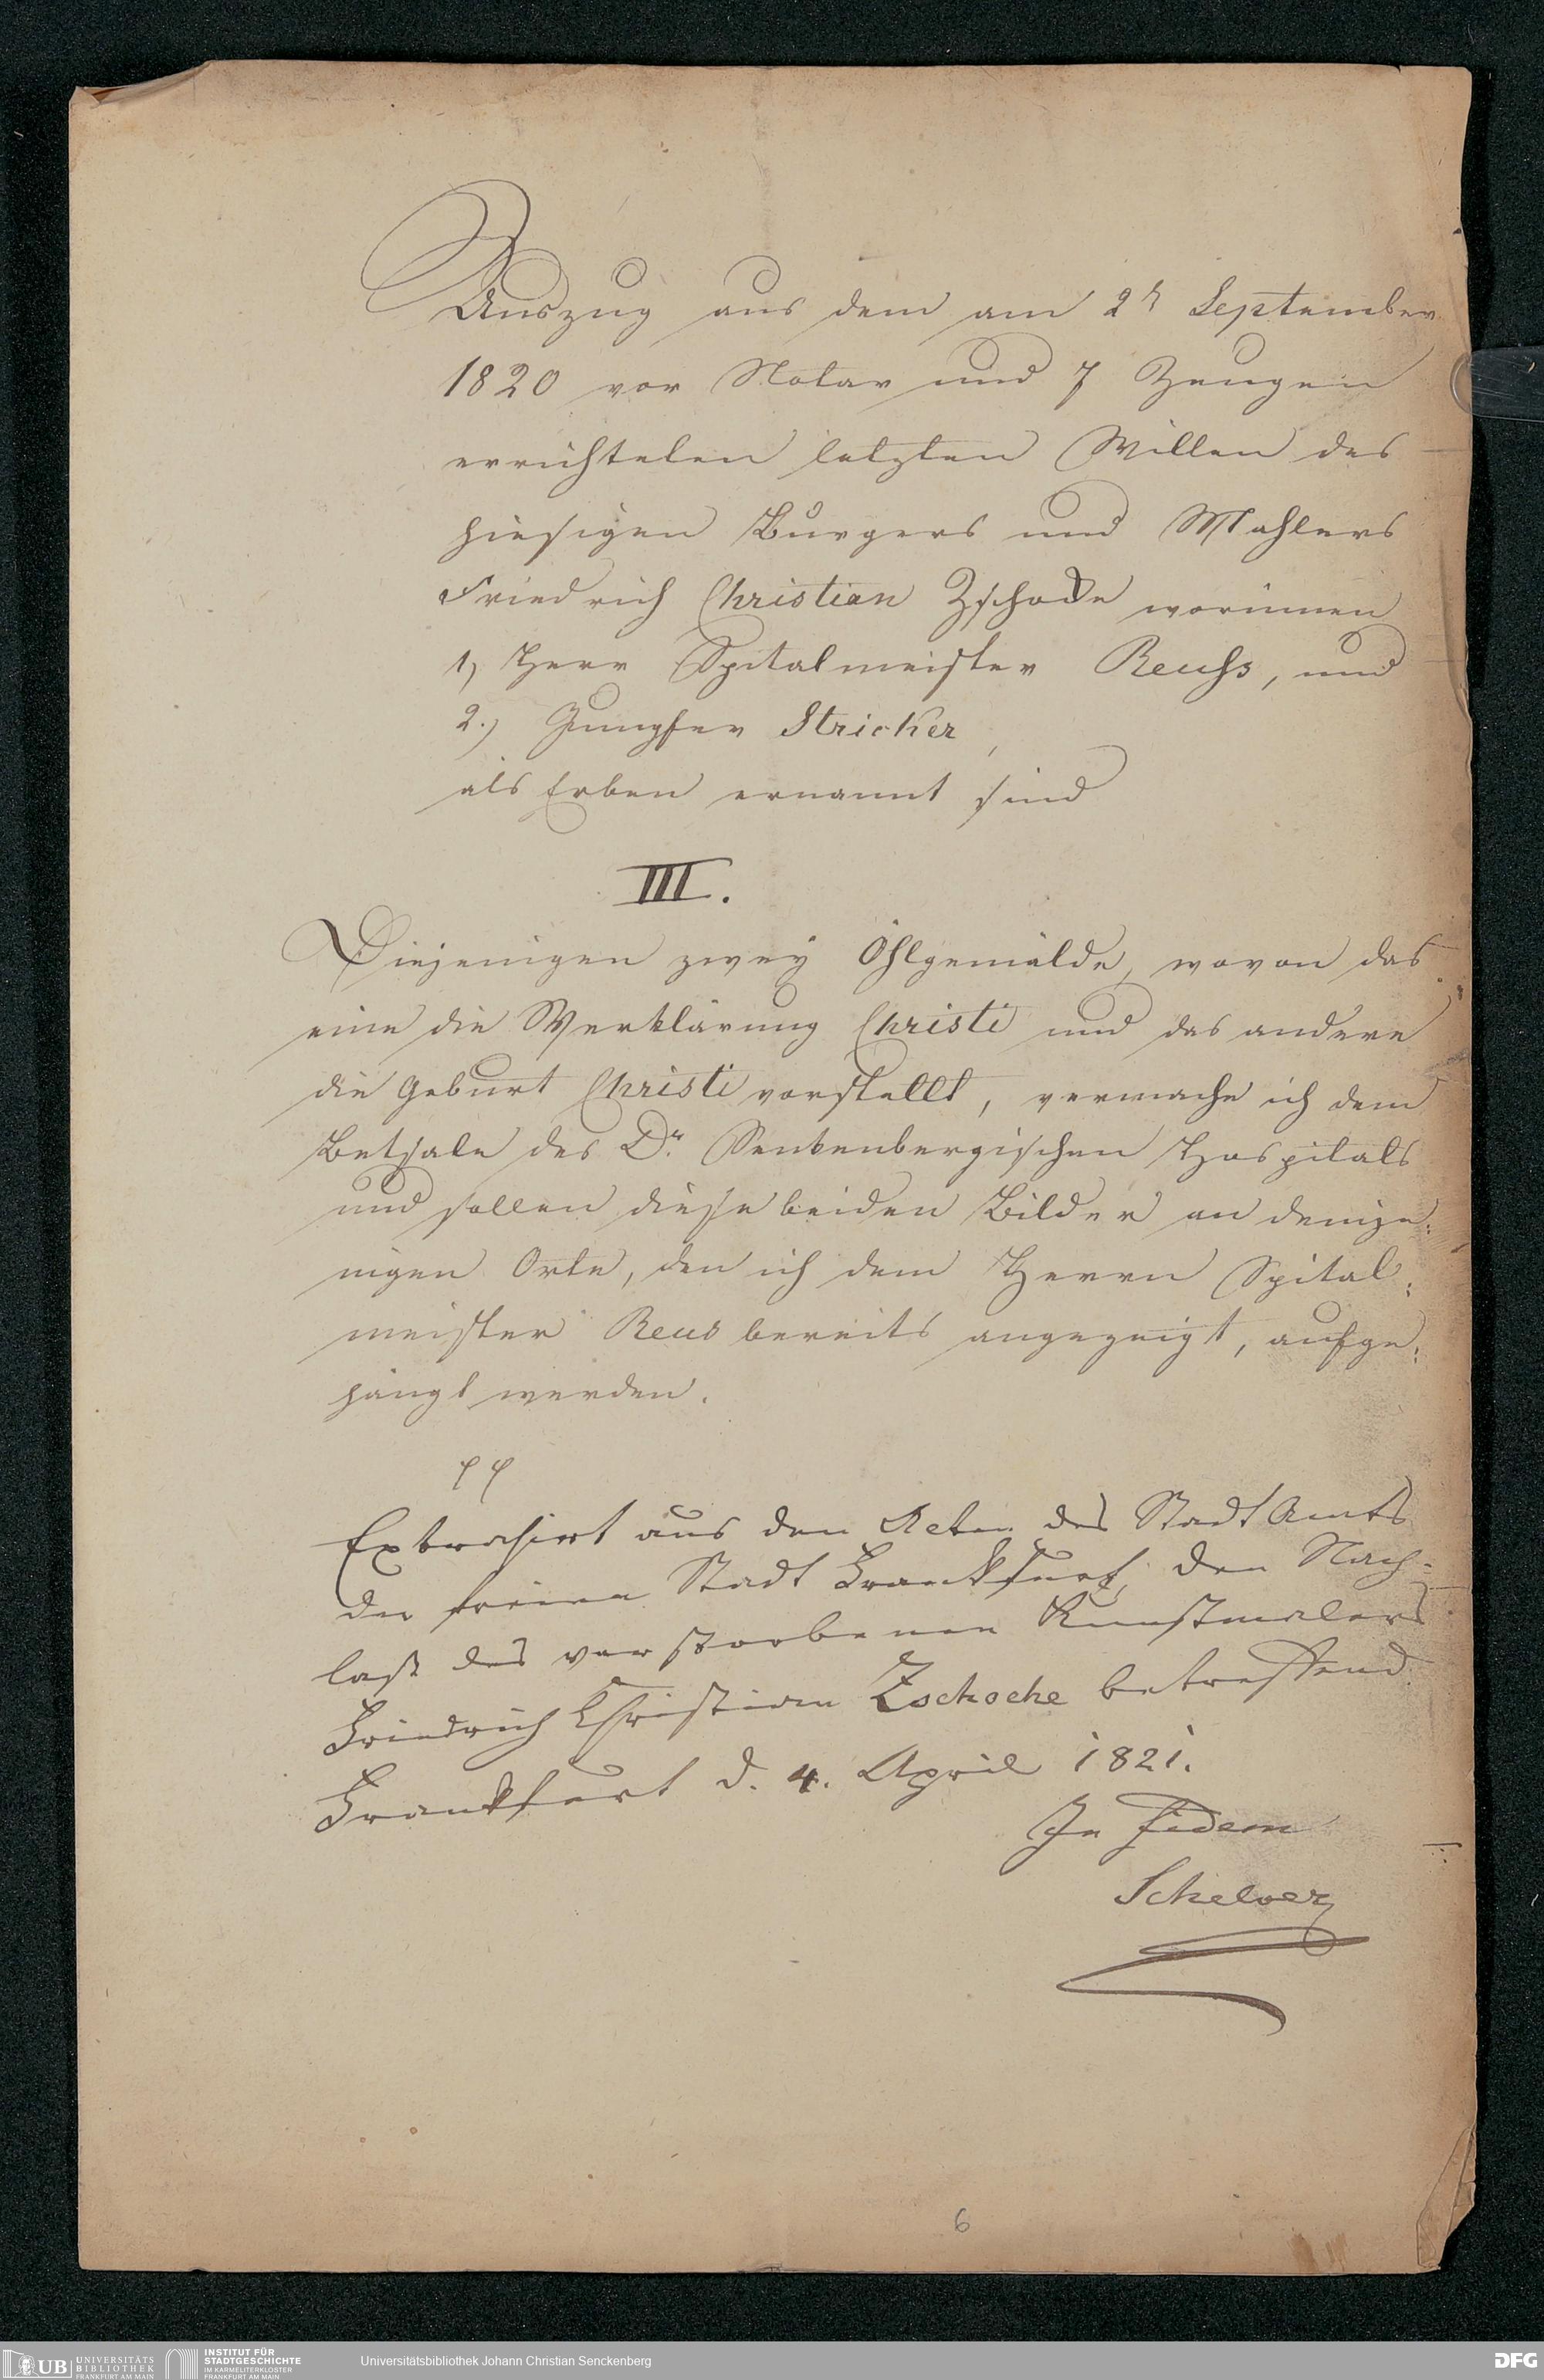 Auszug aus dem am 2n September
1820 vor Notar und 7 Zeugen
errichteten letzten Willen des
hiesigen Burgers und Mahlers
Friedrich Christian Zschoche worinnen
1) Herr Spitalmeister Reuss, und
2.) Jungfer Stricker,
als Erben ernannt sind
III.
Diejenigen zwey Öhlgemälde, wovon das
eine die Verklärung Christi und das andere
die Geburt Christi vorstellt, vermache ich dem
Betsale des Dr. Senkenbergischen Hospitals
und sollen diese beiden Bilder an demje:
nigen Orte, den ich dem Herrn Spital:
meister Reus bereits angezeigt, aufge:
hängt werden.
pp
Extrahirt aus den Acten des Stadt Amts
der freien Stadt Frankfurt, den Nach-
laß des verstorbenen Kunstmalers
Friedrich Christian Zschoche betreffend.
Frankfurt d. 4. April 1821.
In fidem
Schelver
6
UB UNIVERSITÄTS
BIBLIOTHEK
FRANKFURT AM MAIN
INSTITUT FÜR
STADTGESCHICHTE
IM KARMELITERKLOSTER
FRANKFURT AM MAIN
Universitätsbibliothek Johann Christian Senckenberg
DFG